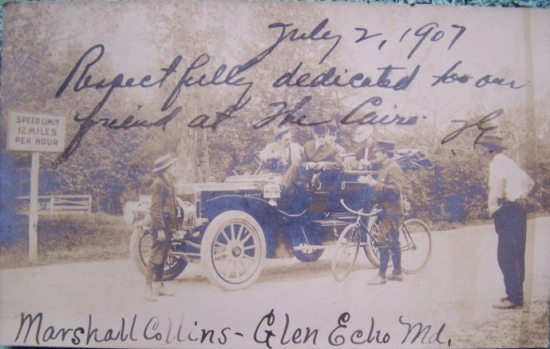 July 2, 1907
Respectfully dedicated to our
friend at The Cairo.
SPEED LIMIT
12 MILES
PER HOUR
Marshall Collins - Glen Echo Md.